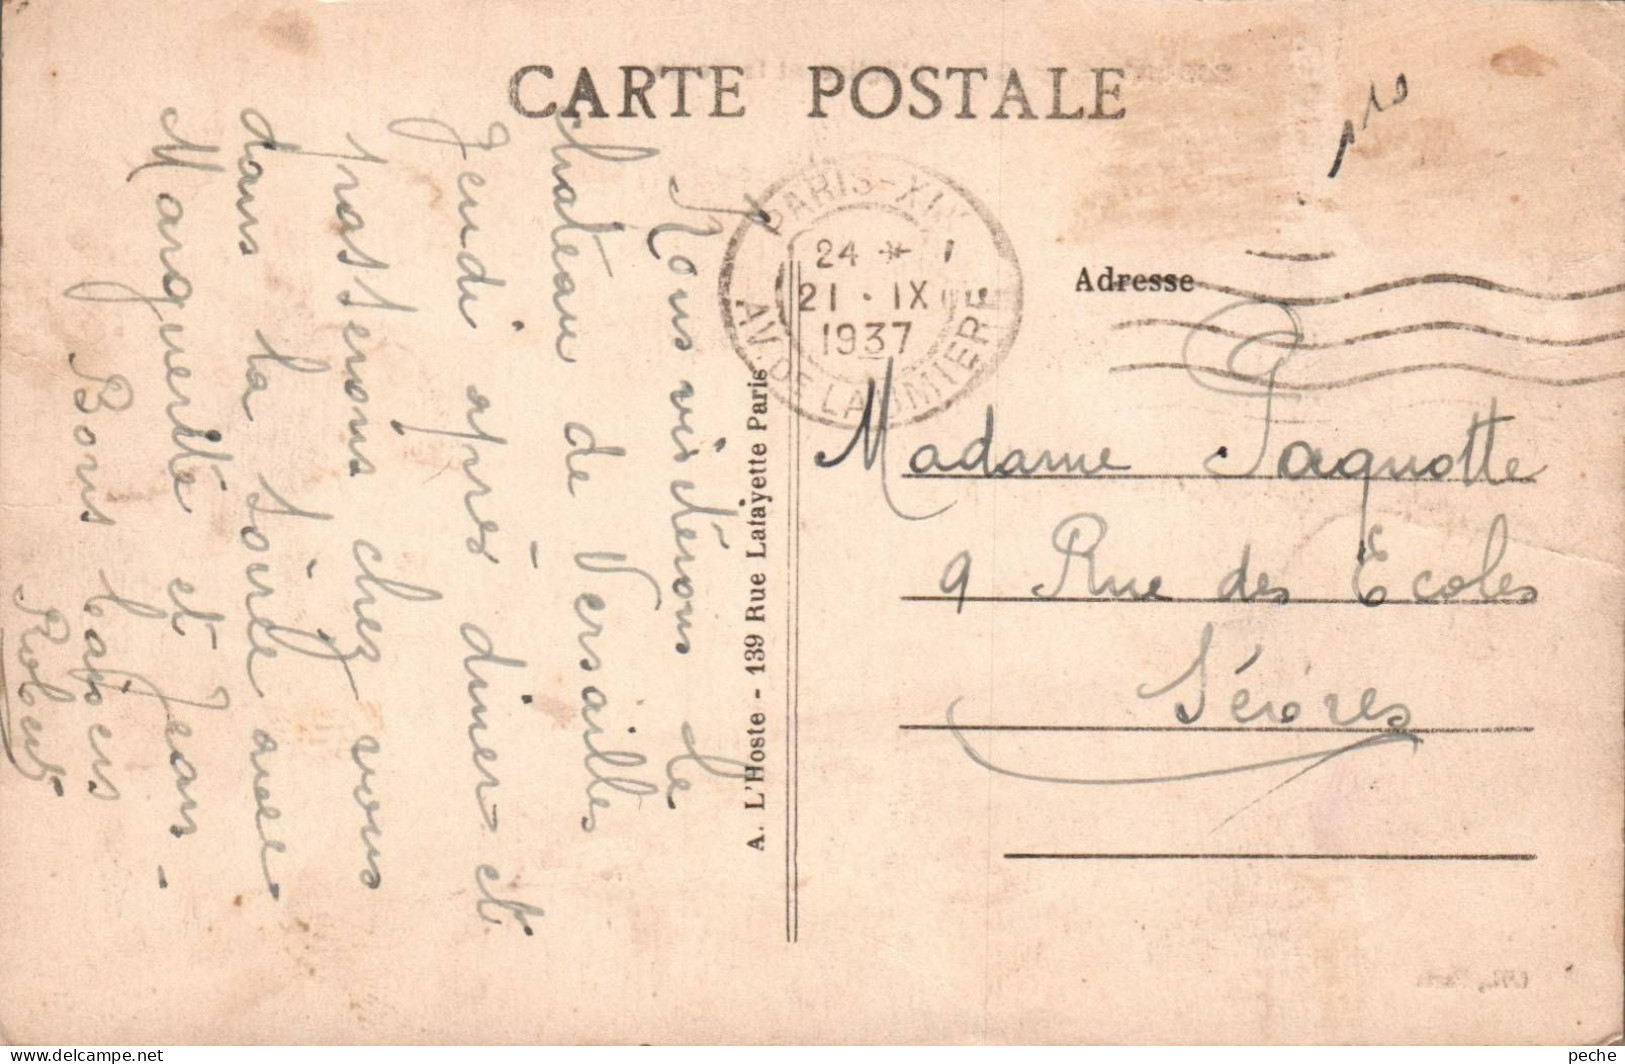 CARTE POSTALE
PARIS-XIX
24 * 
21 · IX
1937
AV. DE LAUMIERE
Nous visiterons le
chateau de Versailles
Jeudi après diner et
passerons chez vous
dans la soirée avec
Marguerite et Jean -
Bons baisers
Robert
A. L'Hoste - 139 Rue Lafayette Paris
Adresse
Madame Paquotte
9 Rue des Ecoles
Sèvres
peche